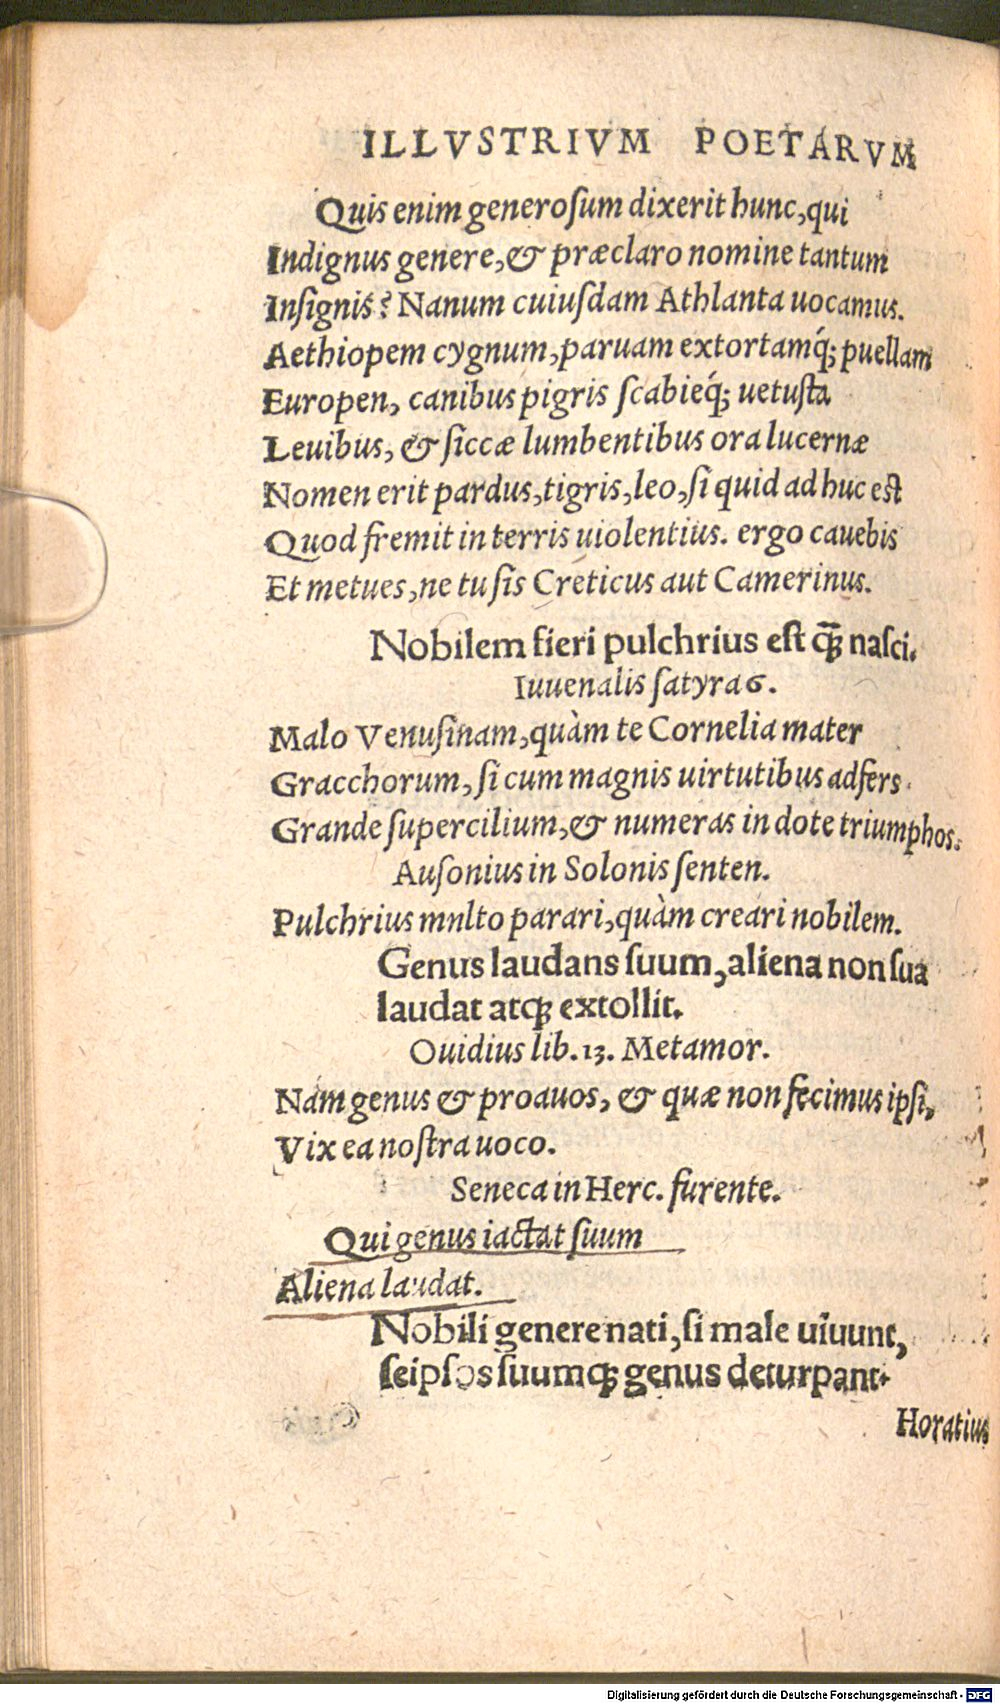 ILLVSTRIVM POETARVM
Quis enim generoſum dixerit hunc, qui
Indignus genere, & præclaro nomine tantum
Inſignis? Nanum cuiuſdam Athlanta uocamus.
Aethiopem cygnum, paruam extortamq́; puellam
Europen, canibus pigris ſcabieq́; uetuſta
Leuibus, & ſiccæ lumbentibus ora lucernæ
Nomen erit pardus, tigris, leo, ſi quid ad huc eſt
Quod fremit in terris uiolentius. ergo cauebis
Et metues, ne tu ſis Creticus aut Camerinus.
Nobilem fieri pulchrius eſt q̃ꝫ naſci.
Iuuenalis ſatyra 6.
Malo Venuſinam, quàm te Cornelia mater
Gracchorum, ſi cum magnis uirtutibus adfers
Grande ſupercilium, & numeras in dote triumphos.
Auſonius in Solonis ſenten.
Pulchrius mnlto parari, quàm creari nobilem.
Genus laudans ſuum, aliena non ſua
laudat atqꝫ extollit.
Ouidius lib. 13. Metamor.
Nam genus & proauos, & quæ non fecimus ipſi,
Vix ea noſtra uoco.
Seneca in Herc. furente.
Qui genus iactat ſuum
Aliena laudat.
Nobili genere nati, ſi male uiuunt,
ſeipſos ſuumqꝫ genus deturpant.
Horatius
Digitalisierung gefördert durch die Deutsche Forschungsgemeinschaft - DFG